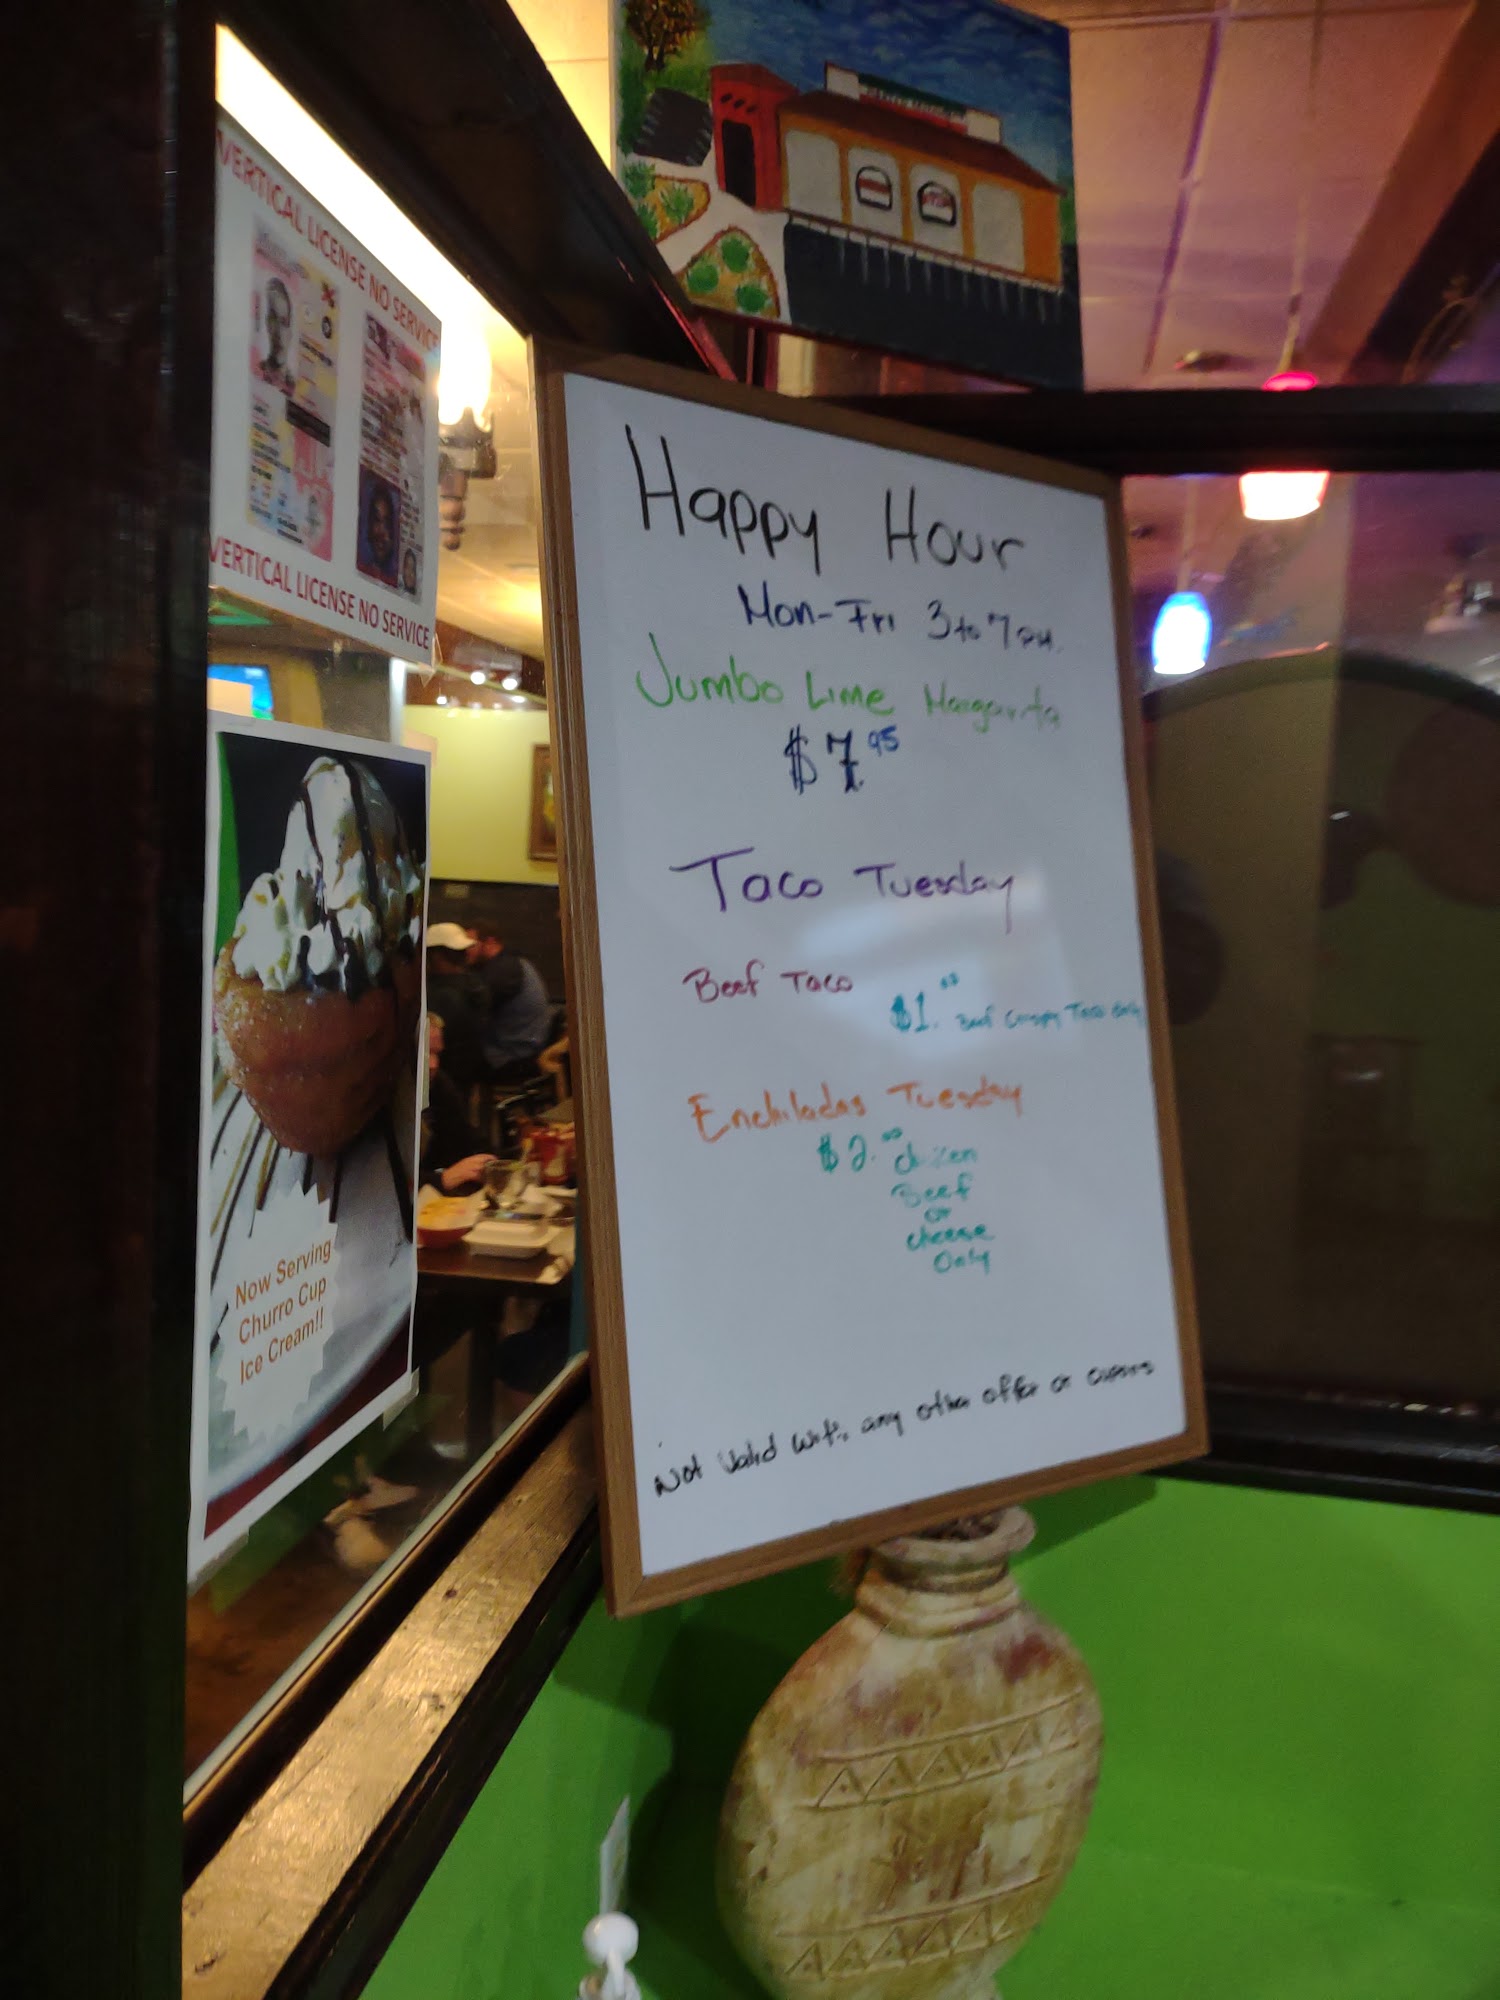 VERTICAL LICENSE NO SERVICE
VERTICAL LICENSE NO SERVICE
Now Serving
Churro Cup
Ice Cream!!
Happy Hour
Mon-Fri 3 to 7 pm.
Jumbo Lime Margarita
$7.95
Taco Tuesday
Beef Taco
$1.00 Beef Crispy Taco Only
Enchiladas Tuesday
$2.00 Chicken
Beef
or
cheese
Only
Not Valid With any other offer or cupons